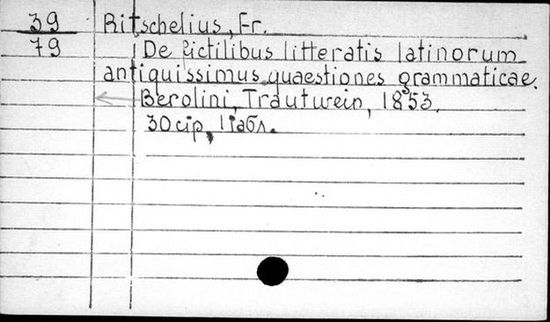 39
79
Ritschelius, Fr.
De fictilibus litteratis latinorum
antiquissimus quaestiones grammaticae.
Berolini, Trautwein, 1853.
30 стр, 1 табл.